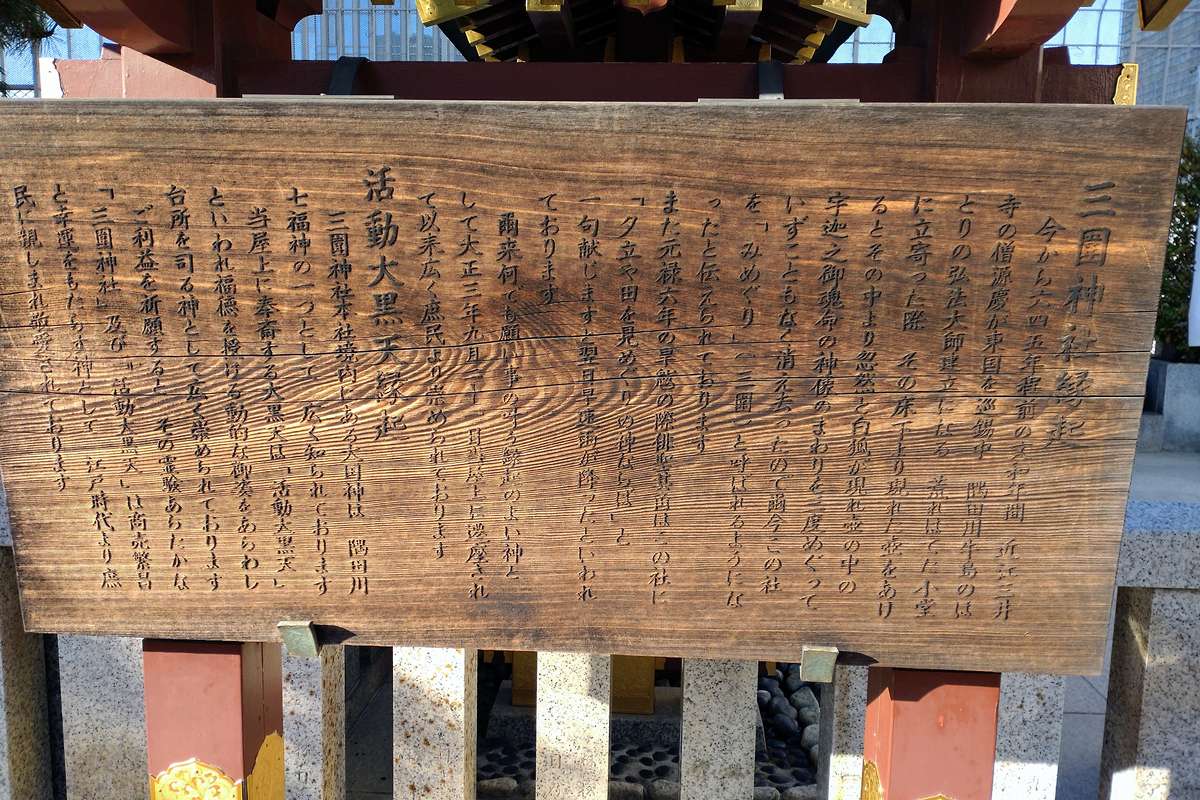 三囲神社縁起
今から六四五年程前の文和年間 近江三井
寺の僧源慶が東国を巡錫中 隅田川牛島のほ
とりの弘法大師建立になる 荒れはてた小堂
に立寄った際 その床下より現れた壺をあけ
るとその中より忽然と白狐が現れ壺の中の
宇迦之御魂命の神像のまわりを三度めぐって
いずこともなく消え去ったので爾今この社
を「みめぐり」(三囲)と呼ばれるようにな
ったと伝えられております
また元禄六年の旱魃の際俳聖其角はこの社に
「夕立や田を見めぐりの神ならば」と
一句献じますと翌日早速雨が降ったといわれ
ております
爾来何でも願い事の叶う縁起のよい神と
して大正三年九月二十 日当屋上に遷座され
て以来広く庶民より崇められております
活動大黒天縁起
三囲神社本社境内にある大国神は 隅田川
七福神の一つとして 広く知られております
当屋上に奉斎する大黒天は「活動大黒天」
といわれ福徳を授ける動的な御姿をあらわし
台所を司る神として広く崇められております
ご利益を祈願する上 その霊験あらたかな
「三囲神社」及び 「活動大黒天」は商売繁昌
と幸運をもたらす神として 江戸時代より庶
民に親しまれ敬愛されております